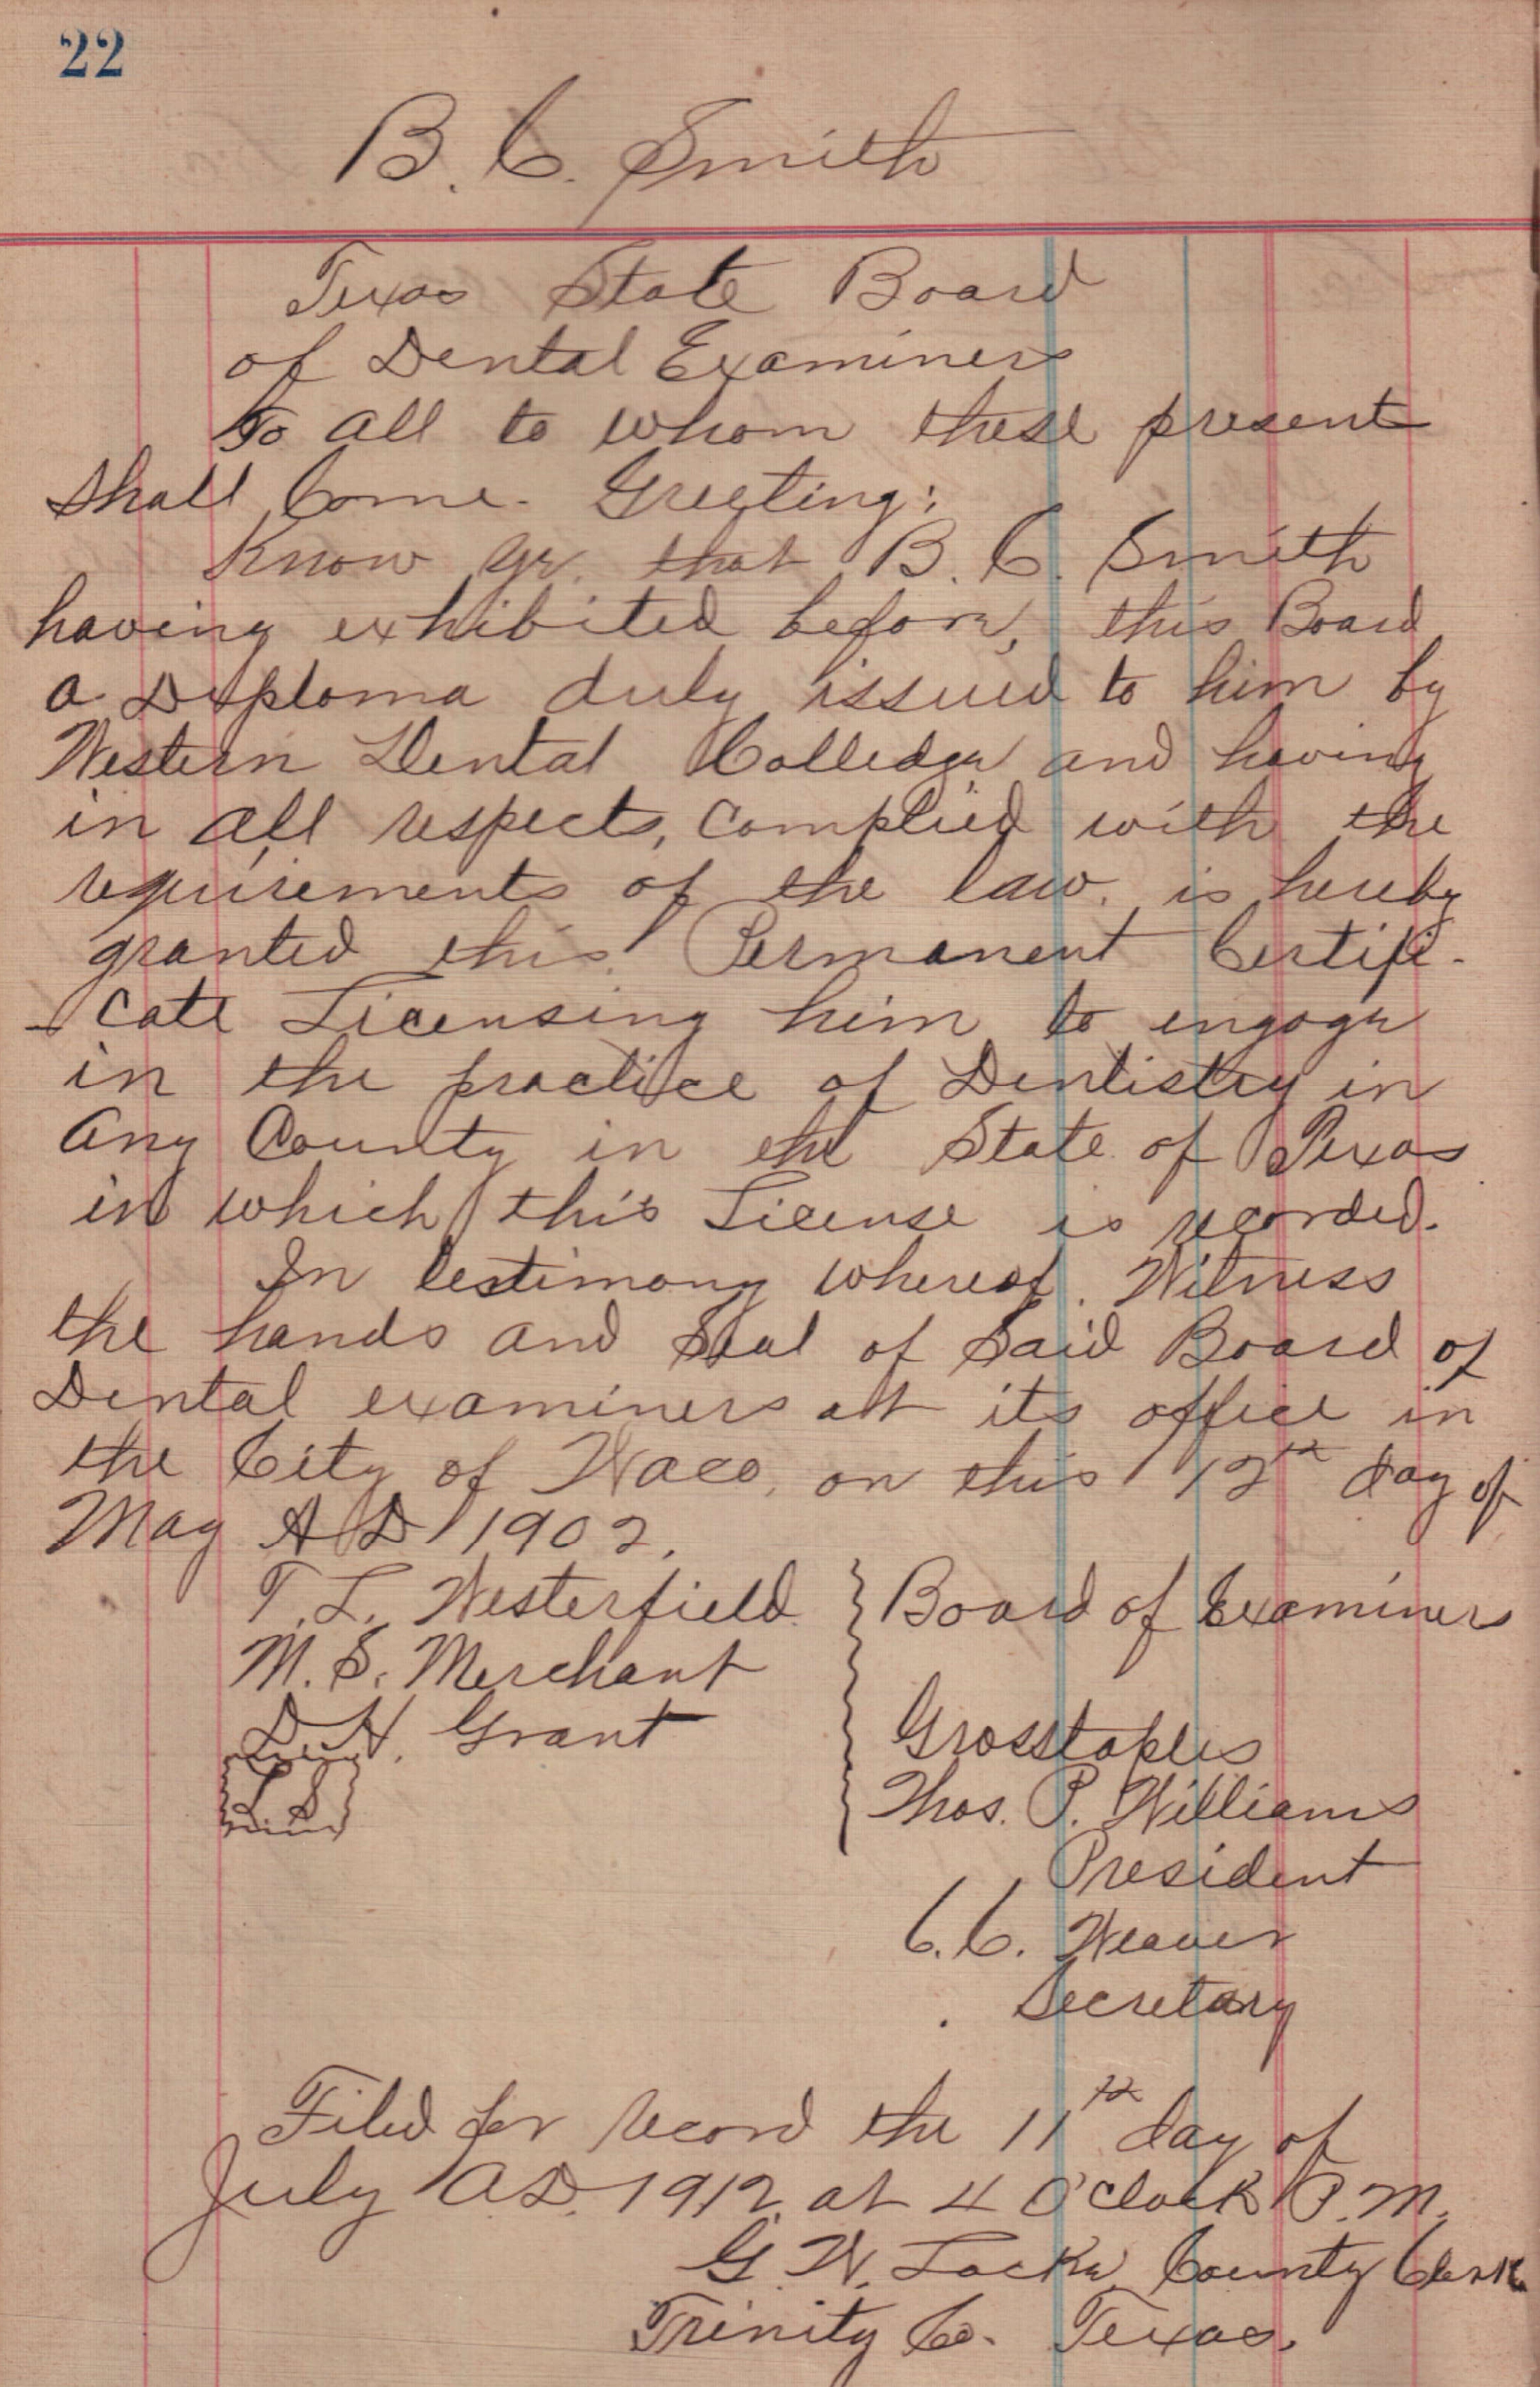 22
B. C. Smith
Texas State Board
of Dental Examiners
To all to whom these present
shall Come. Greeting:
Know ye. that B. C. Smith
having exhibited before, this Board
a Diploma duly issued to him by
Western Dental Colledge and having
in all respects, complied with the
requirements of the law. is hereby
granted this Permanent Certifi-
-cate Licensing him to engage
in the practice of Dentistry in
any County in the State of Texas
in which this License is recorded.
In testimony whereof. Witness
the hands and Seal of Said Board of
Dental examiners at its office in
the City of Waco, on this 12th day of
May A D 1902.
T. L. Westerfield } Board of Examiners
M. S. Merchant
D. H. Grant Grosstaples
L S Thos. P. Williams
President
C. C. Weaver
Secretary
Filed for record the 11th day of
July A.D. 1912 at 4 O'clock P.M.
G. W. Locke, County Clerk
Trinity Co. Texas.